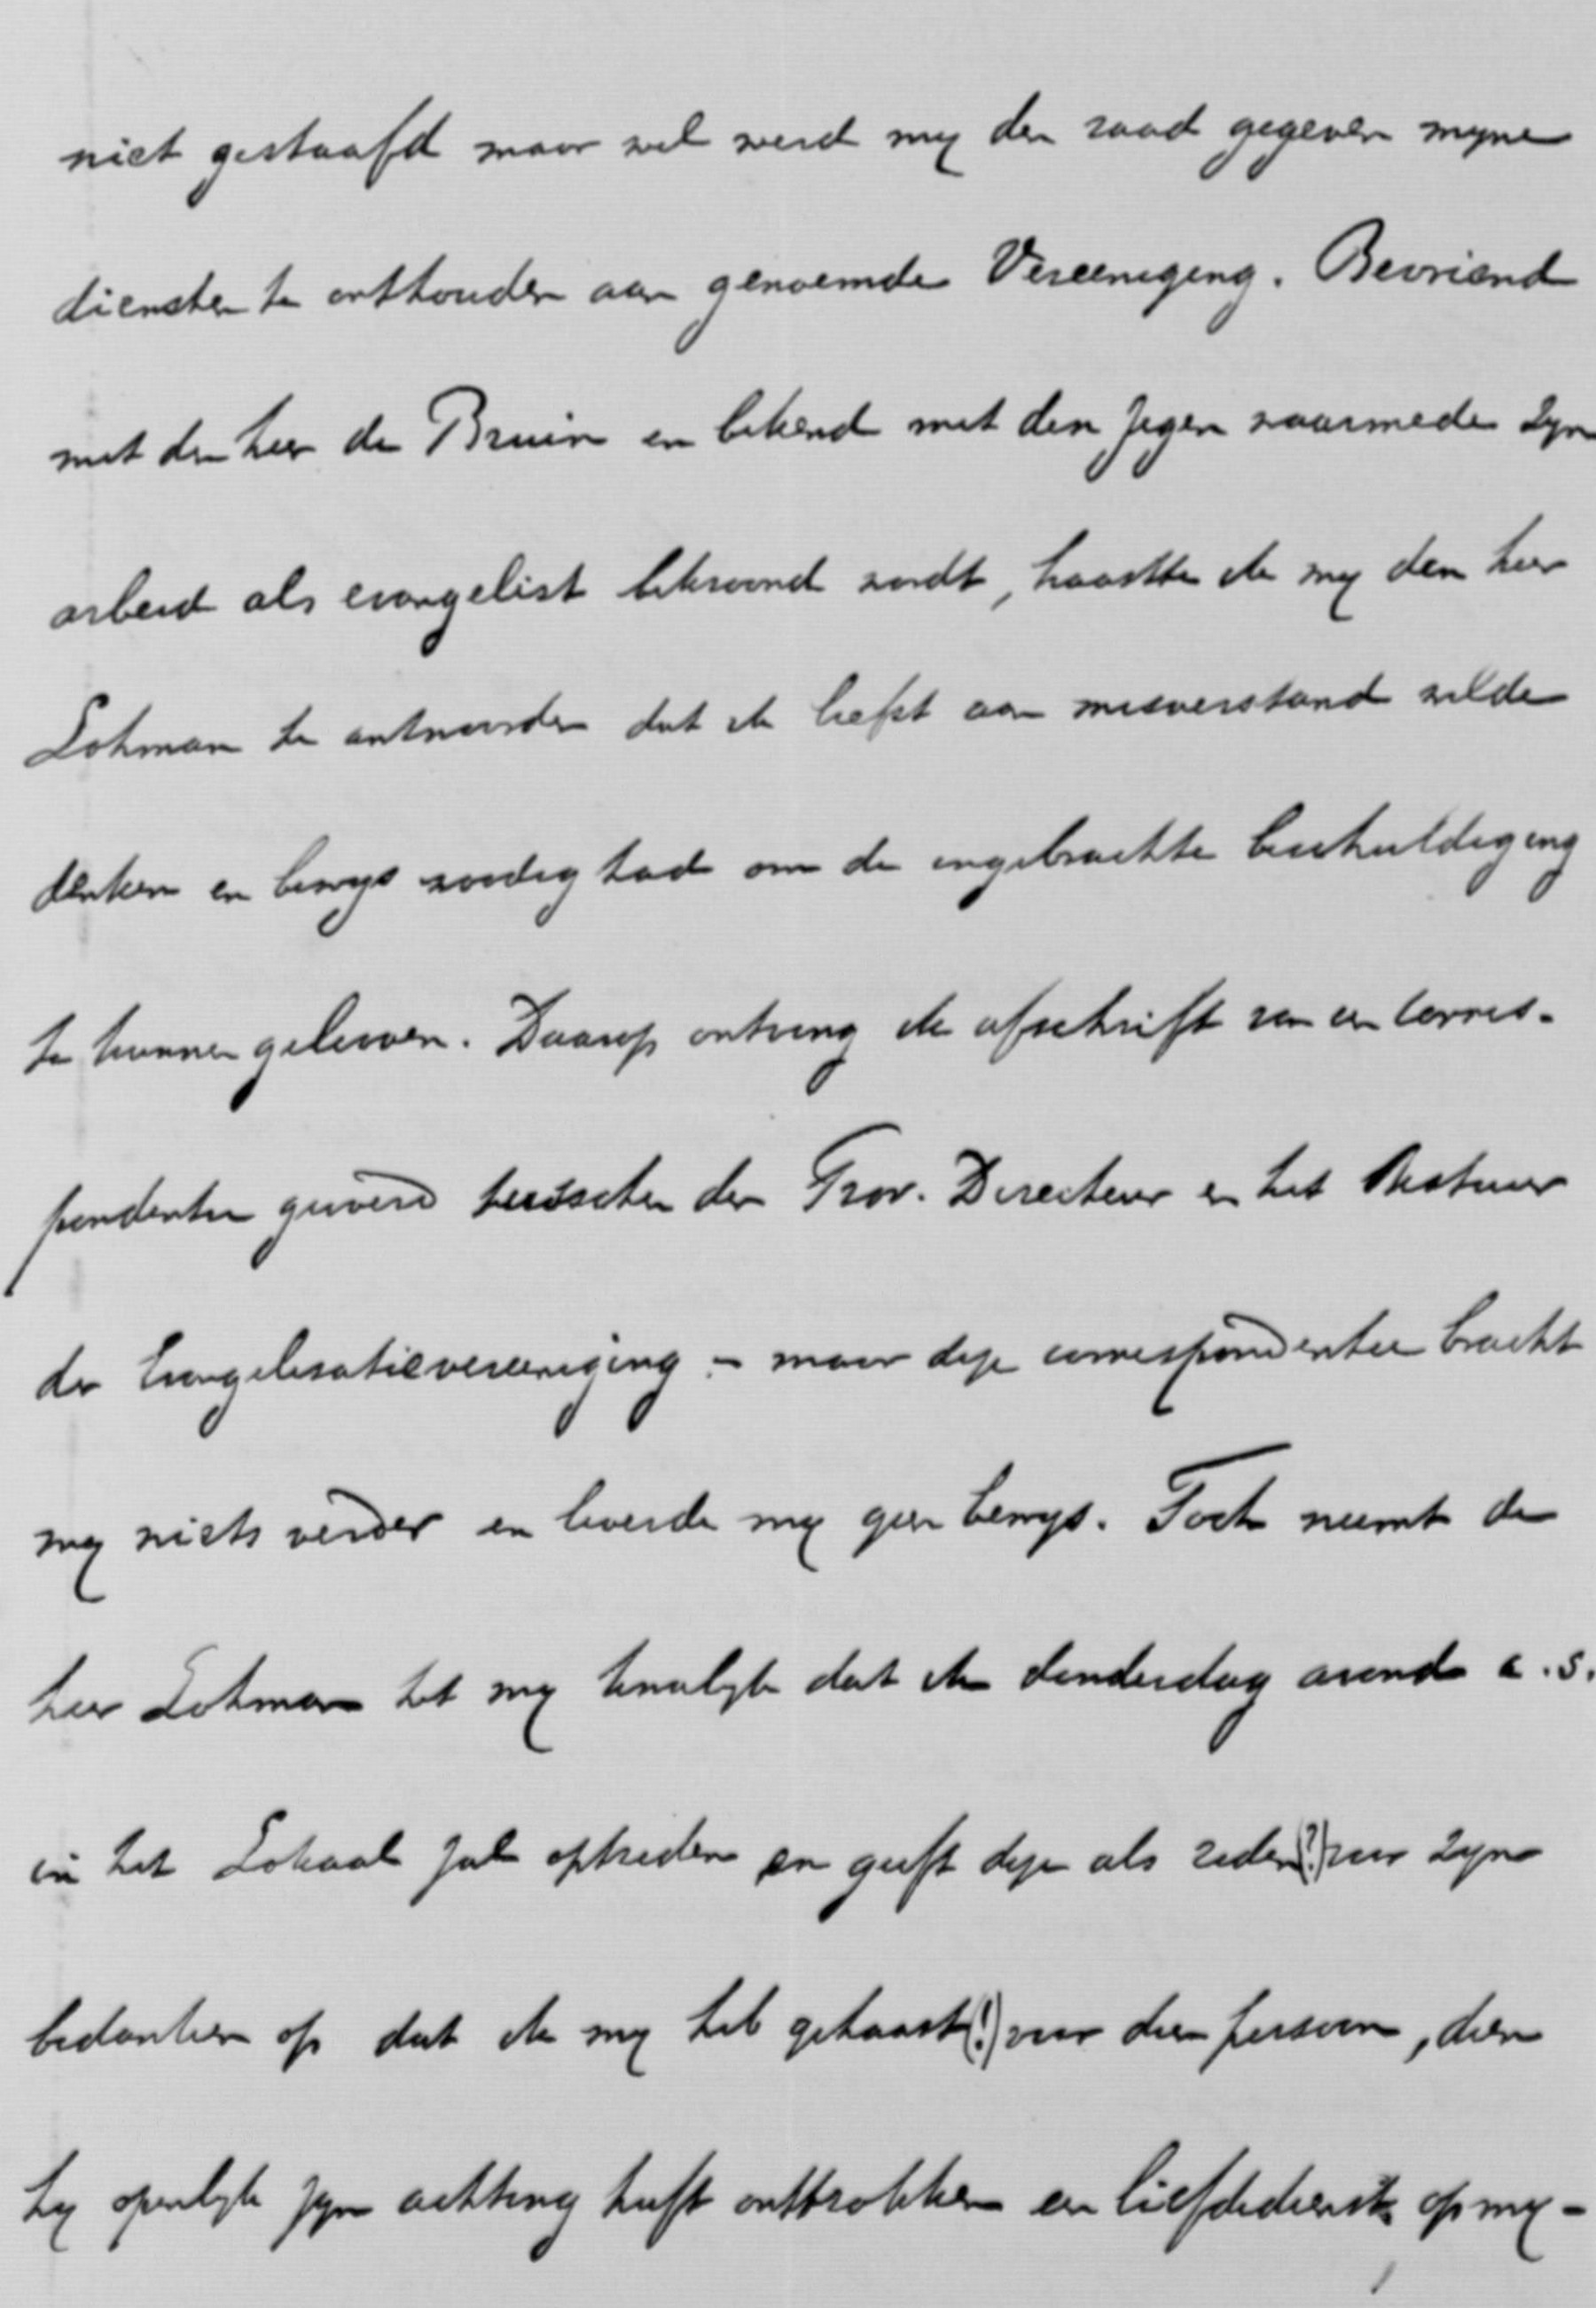 niet gestaafd maar wel werd my den raad gegeven myne
diensten te onthouden aan genoemde Vereeniging. Bevriend
met den heer de Bruin en bekend met den zegen waarmede zyn
arbeid als evangelist bekroond wordt, haastte ik my den heer
Lohman te antwoorden dat ik liefst aan misverstand wilde
denken en bewys noodig had om de ingebrachte beschuldiging
te kunnen gelooven. Daarop ontving ik afschrift van een corres-
pondentie gevoerd tusschen den Prov. Directeur en het Bestuur
der Evangelisatievereeniging - maar deze correspondentie bracht
my niets verder en leverde my geen bewys. Toch neemt de
heer Lohman het my kwalyk dat ik donderdag avond a.s.
in het Lokaal zal optreden en geeft deze als reden (?) voor zyn
bedanken op dat ik my heb gehaast (!) voor dien persoon, dien
hy openlyk zyn achting heeft onttrokken een liefdedienst op my-